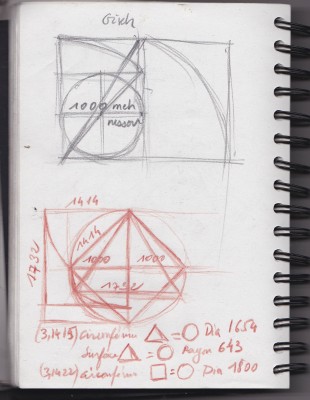 Gisch
1000 meh
nessou
1414
1414
1732
1000 1000
1732
(3,1415) circonférence △ = ○ Dia 1654
surface △ = ○ Rayon 643
(3,1422) circonférence □ = ○ Dia 1800